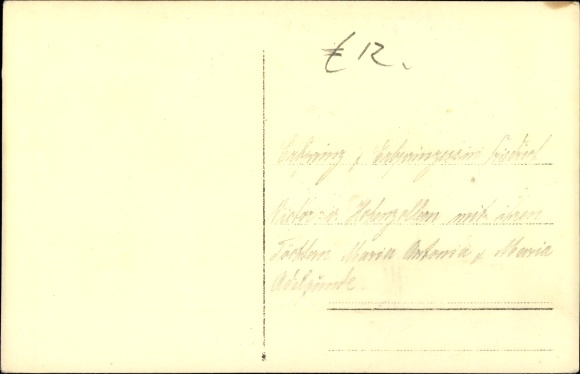 € 12.
Erbprinz u Erbprinzessin Friedrich
Victor v. Hohenzollern mit ihren
Töchtern Maria Antonia u. Maria
Adelgunde.